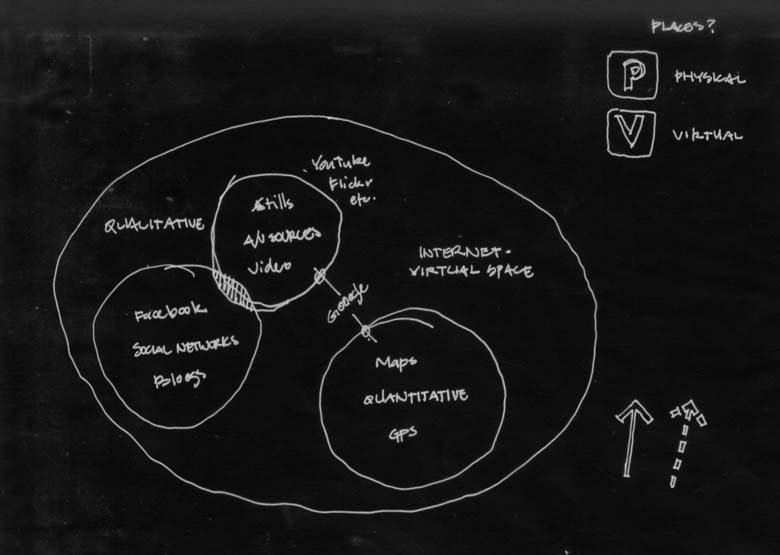 PLACES?
P PHYSICAL
V VIRTUAL
YouTube
Flickr
etc.
QUALITATIVE
Stills
A/V SOURCES
Video
INTERNET -
VIRTUAL SPACE
Google
Facebook
SOCIAL NETWORKS
Blogs
Maps
QUANTITATIVE
GPS